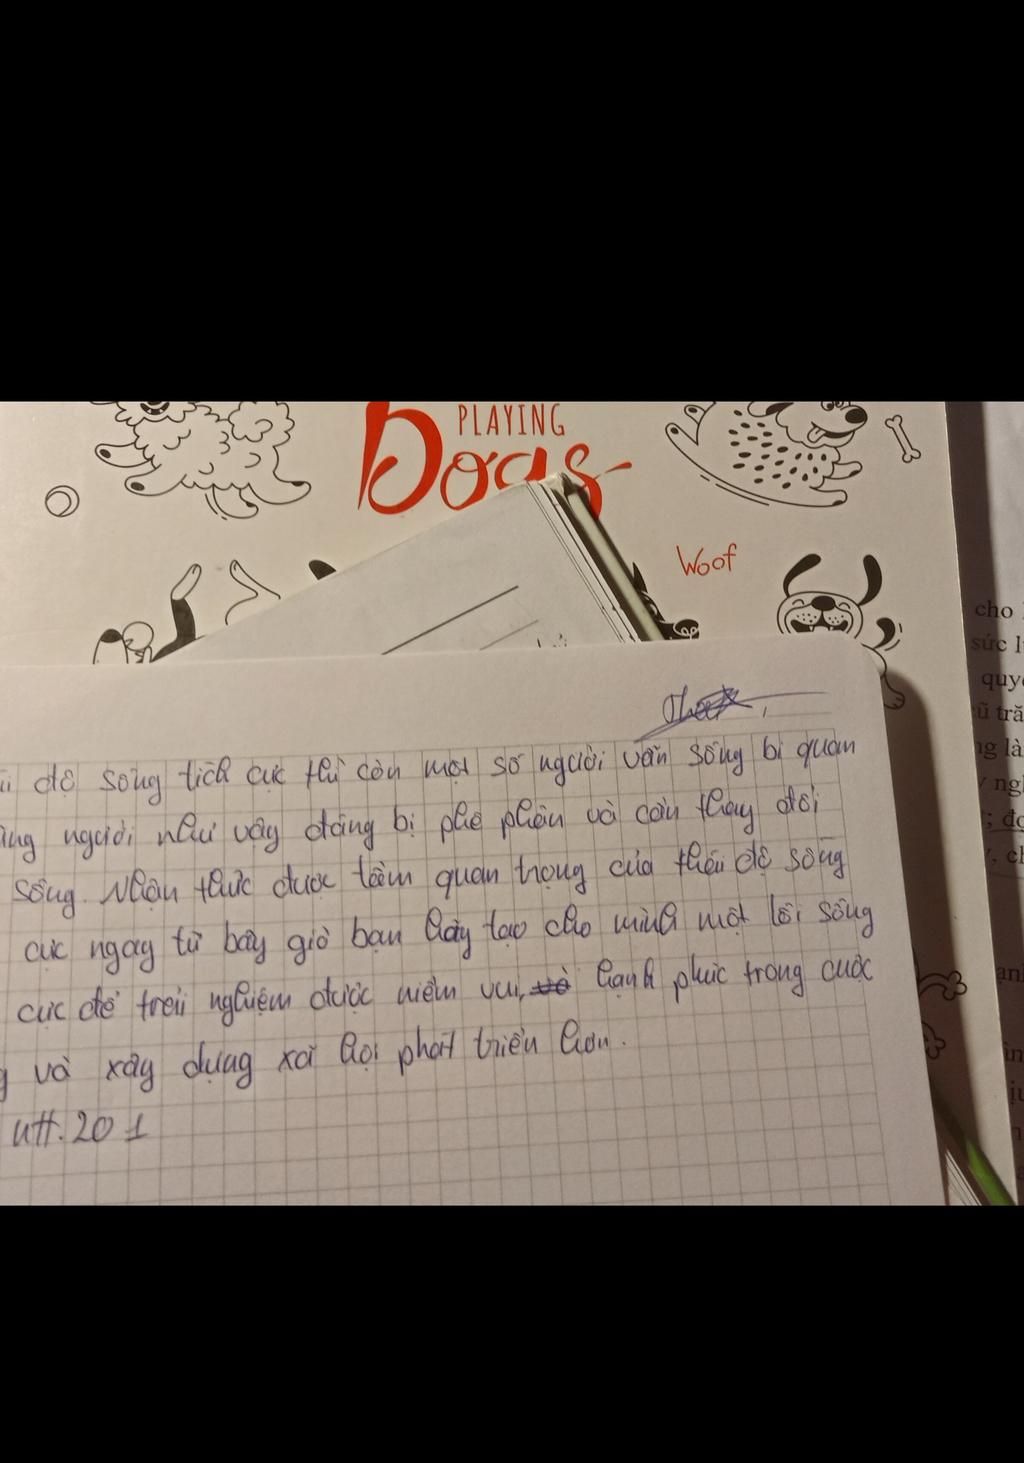 PLAYING
Dogs
Woof
độ sống tích cực thì còn một số người vẫn sống bi quan
người như vậy đáng bị phê phán và cần thay đổi
sống. Nhận thức được tầm quan trọng của thái độ sống
cực ngay từ bây giờ bạn hãy tạo cho mình một lối sống
cực để trải nghiệm được niềm vui, hạnh phúc trong cuộc
và xây dựng xã hội phát triển hơn.
utt. 20 1
cho
sức
quy
ũ tră
ng là
ngh